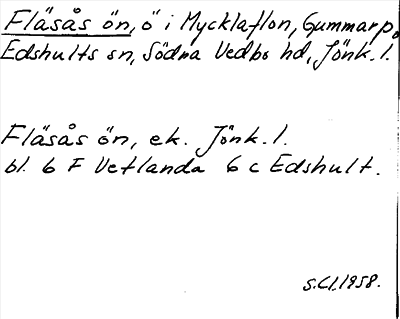 Fläsås ön, ö i Mycklaflon, Gummarp,
Edshults sn, Södra Vedbo hd, Jönk. l.
Fläsås ön, ek. Jönk. l.
bl. 6 F Vetlanda 6 c Edshult.
S.Cl. 1958.